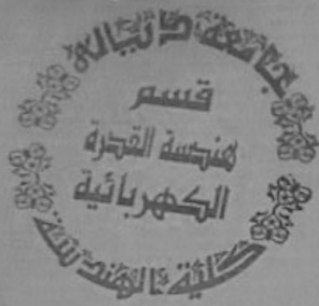 جامعة ديالى
قسم
هندسة القدرة
الكهربائية
كلية الهندسة